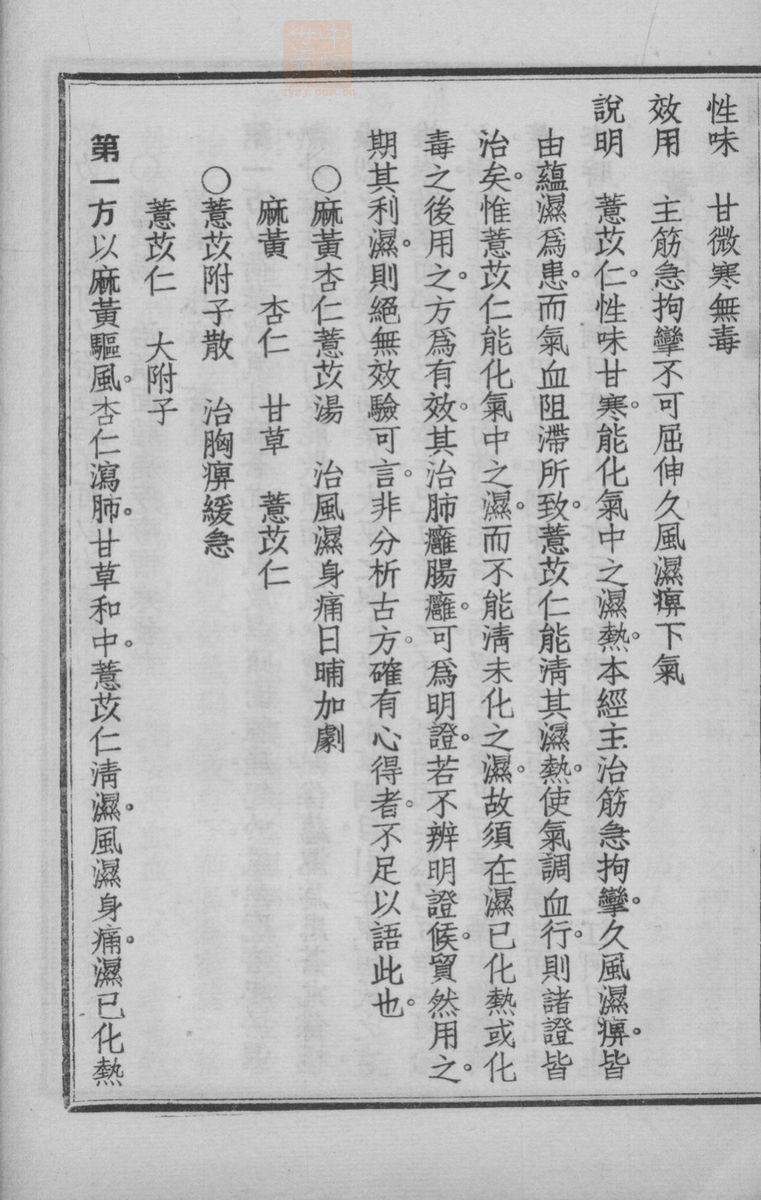 性味　甘微寒無毒
效用　主筋急拘攣不可屈伸久風濕痹下氣
說明　薏苡仁。性味甘寒。能化氣中之濕熱。本經主治筋急拘攣。久風濕痹。皆
由蘊濕爲患。而氣血阻滯所致。薏苡仁能淸其濕熱。使氣調血行。則諸證皆
治矣。惟薏苡仁能化氣中之濕。而不能淸未化之濕。故須在濕已化熱或化
毒之後用之。方爲有效。其治肺癰腸癰。可爲明證。若不辨明證候。貿然用之。
期其利濕。則絕無效驗可言。非分析古方。確有心得者。不足以語此也。
○麻黃杏仁薏苡湯　治風濕身痛日晡加劇
麻黃　杏仁　甘草　薏苡仁
○薏苡附子散　治胸痹緩急
薏苡仁　大附子
第一方以麻黃驅風。杏仁瀉肺。甘草和中。薏苡仁淸濕。風濕身痛。濕已化熱